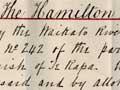 The Hamilton
by the Waikato River
No 242 of the par
rish of Te Rapa. t
ssard and by allot